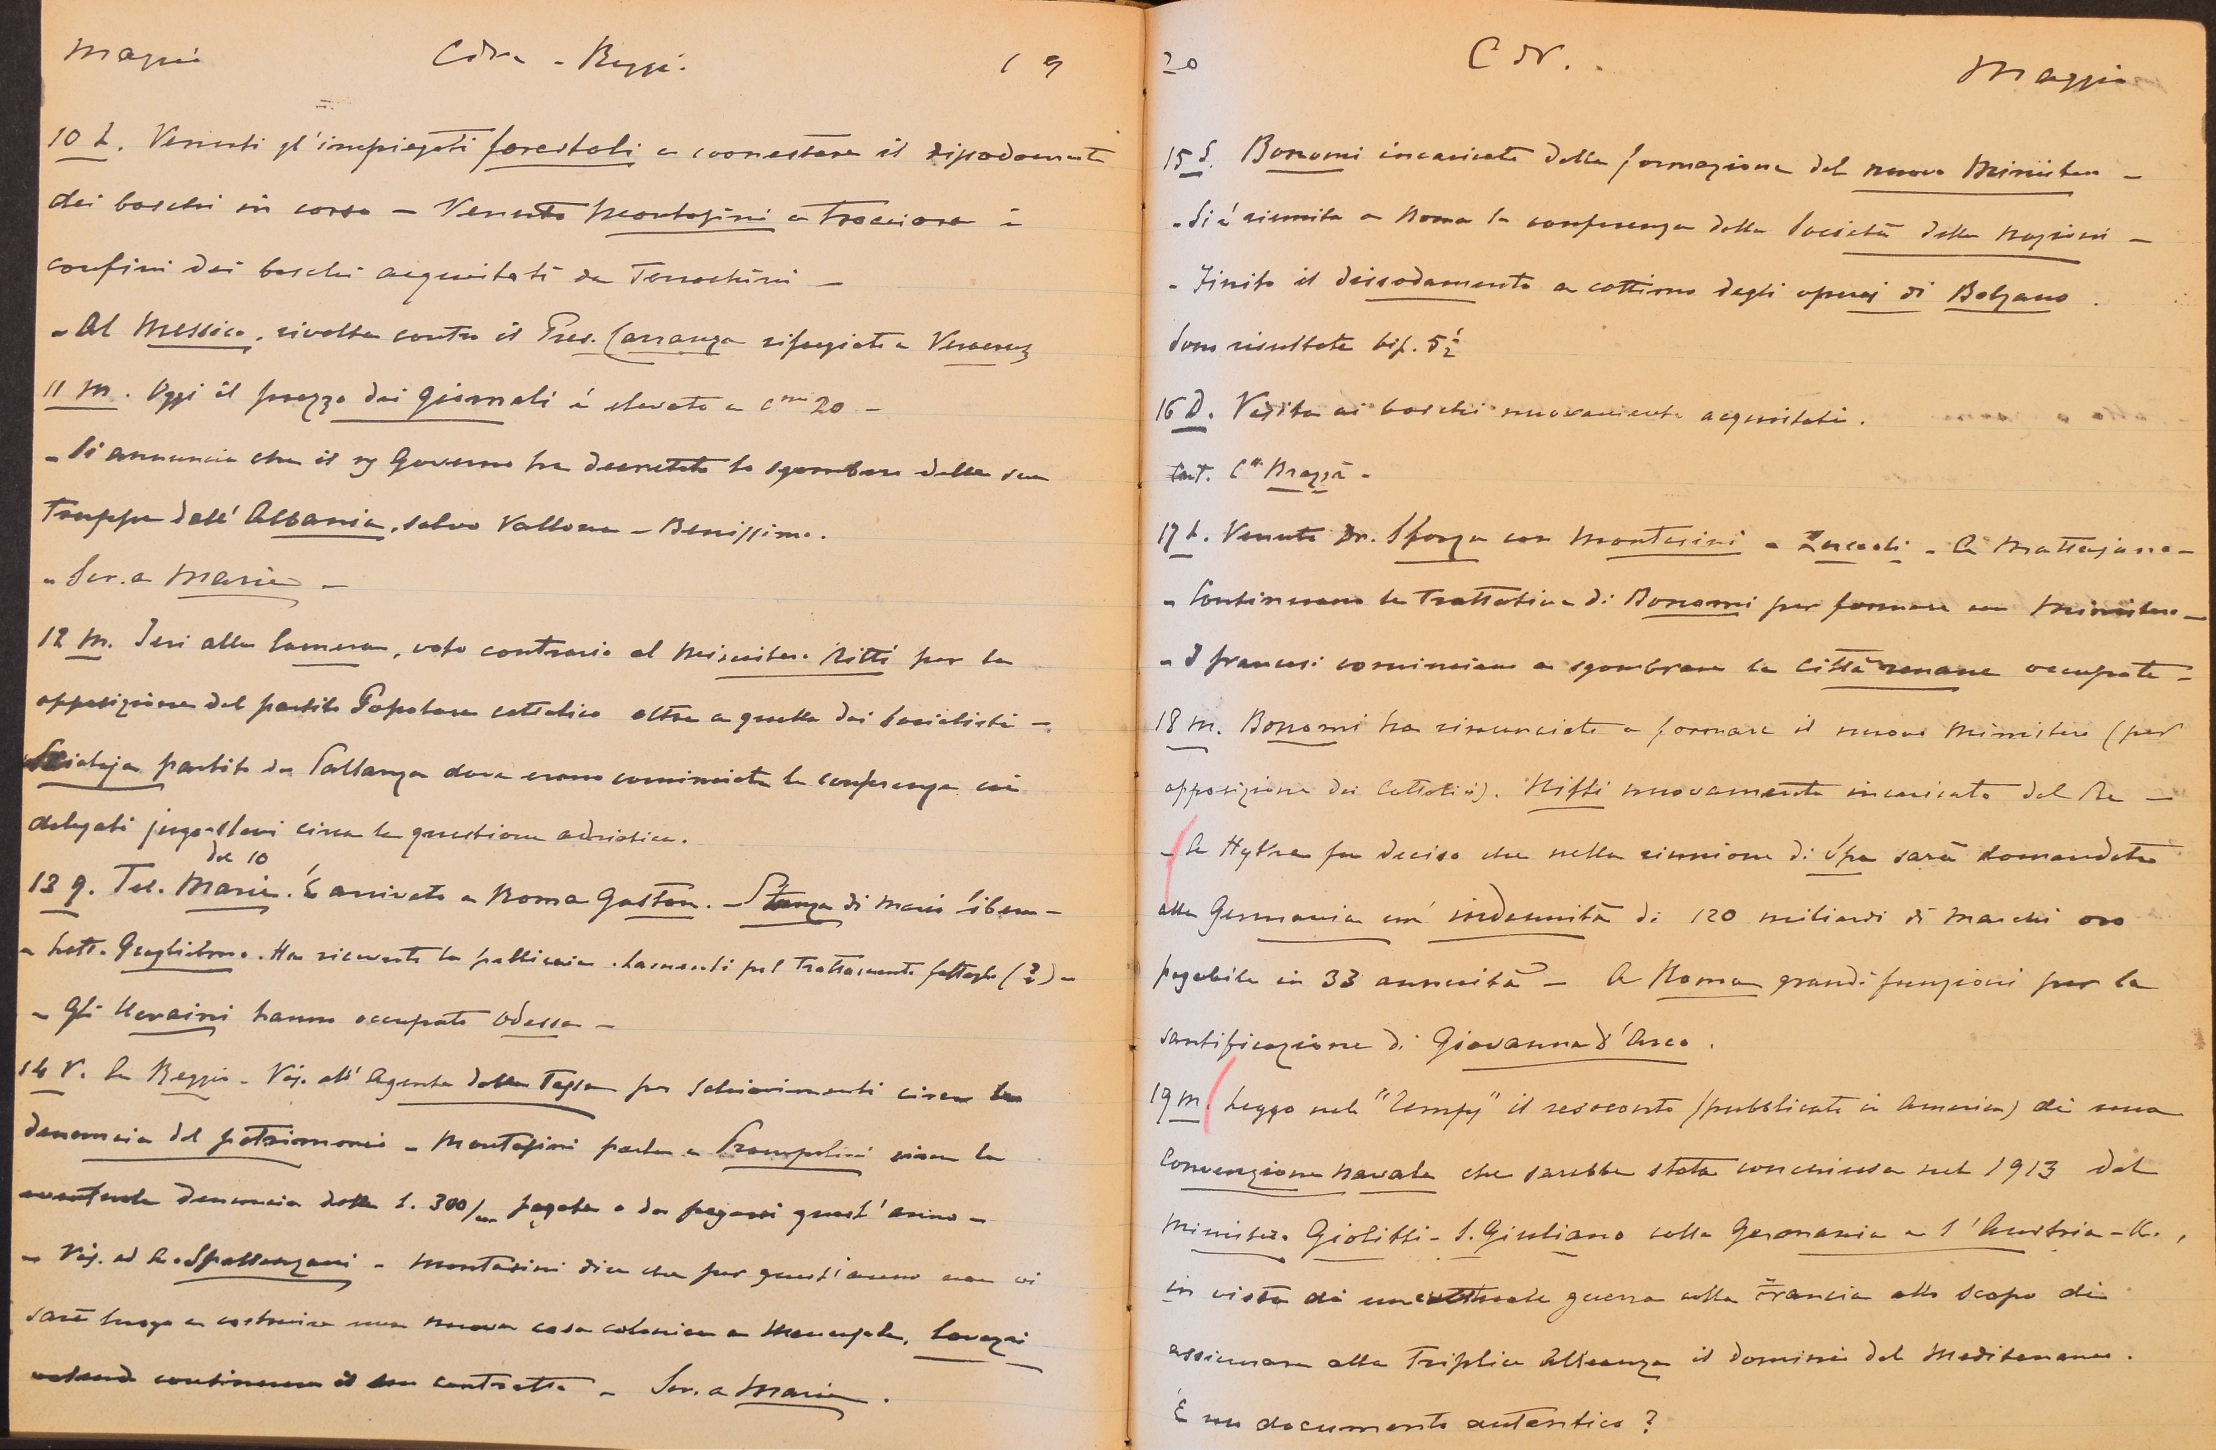 Maggio Cdra - Reggi. 19
10 L. Venuti gl'impiegati forestali a constatare il
dei boschi in corso - Venuto Montasini a tracciare i
confini dei boschi acquistati da Terrachini -
- Al Messico, rivolta contro il Pres. Carranza rifugiato a Veracruz
11 M. Oggi il prezzo dei giornali è elevato a cmi 20 -
- Si annuncia che il ns Governo ha decretato lo sgombero delle sue
truppe dall'Albania, salvo Vallona - Benissimo.
- Scr. a Maria -
12 M. Ieri alla Camera, voto contrario al Ministero Nitti per la
opposizione del partito Popolare cattolico oltre a quella dei Socialisti -
Scialoja partito da Pallanza dove erano cominciate le conferenze coi
delegati jugo-slavi circa la questione adriatica.
del 10
13 g. Tel. Maria. È arrivato a Roma Gaston. - Stanza di Mario libera -
- Lett. Guglielmo. Ha ricevuto la pelliccia. Lamenti pel trattamento (?) -
- Gli Ucraini hanno occupato Odessa -
14 V. A Reggio - Vis. all'Agente delle Tasse per schiarimenti circa la
denuncia del patrimonio - Montasini parla a Prampolini circa la
eventuale denuncia delle L. 300/m pagate o da pagarsi quest'anno -
- Vis. ad A. Spallanzani - Montasini dice che per quest'anno non vi
sarà luogo a costruire una nuova casa colonica a, Cavazzi
volendo continuare il suo contratto - Scr. a Maria.
20 C N. Maggio
15 S. Bonomi incaricato della formazione del nuovo Ministero -
- Si è riunita a Roma la conferenza della Società delle Nazioni -
- Finito il dissodamento a cottimo degli operai di Bolzano.
Sono risultate bif. 5½
16 D. Visita ai boschi nuovamente acquistati.
Cart. Cssa Brazzà -
17 L. Venuto Dr. Sforza con Montasini - Zuccoli - A
- Continuano le trattative di Bonomi per formare un Ministero -
- I francesi cominciano a sgombrare le città renane occupate -
18 M. Bonomi ha rinunciato a formare il nuovo Ministero (per
opposizione dei Cattolici). Nitti nuovamente incaricato dal Re -
- A Hythe fu deciso che nella riunione di Spa sarà domandata
alla Germania un'indennità di 120 miliardi di marchi oro
pagabile in 33 annuità - A Roma grandi funzioni per la
santificazione di Giovanna d'Arco.
19 M. Leggo nel "Temps" il resoconto (pubblicato in America) di una
Convenzione navale che sarebbe stata conchiusa nel 1913 dal
Ministero Giolitti - S. Giuliano colla Germania e l'Austria-U.,
in vista di un'eventuale guerra colla Francia allo scopo di
assicurare alla Triplice Alleanza il dominio del Mediterraneo.
È un documento autentico?